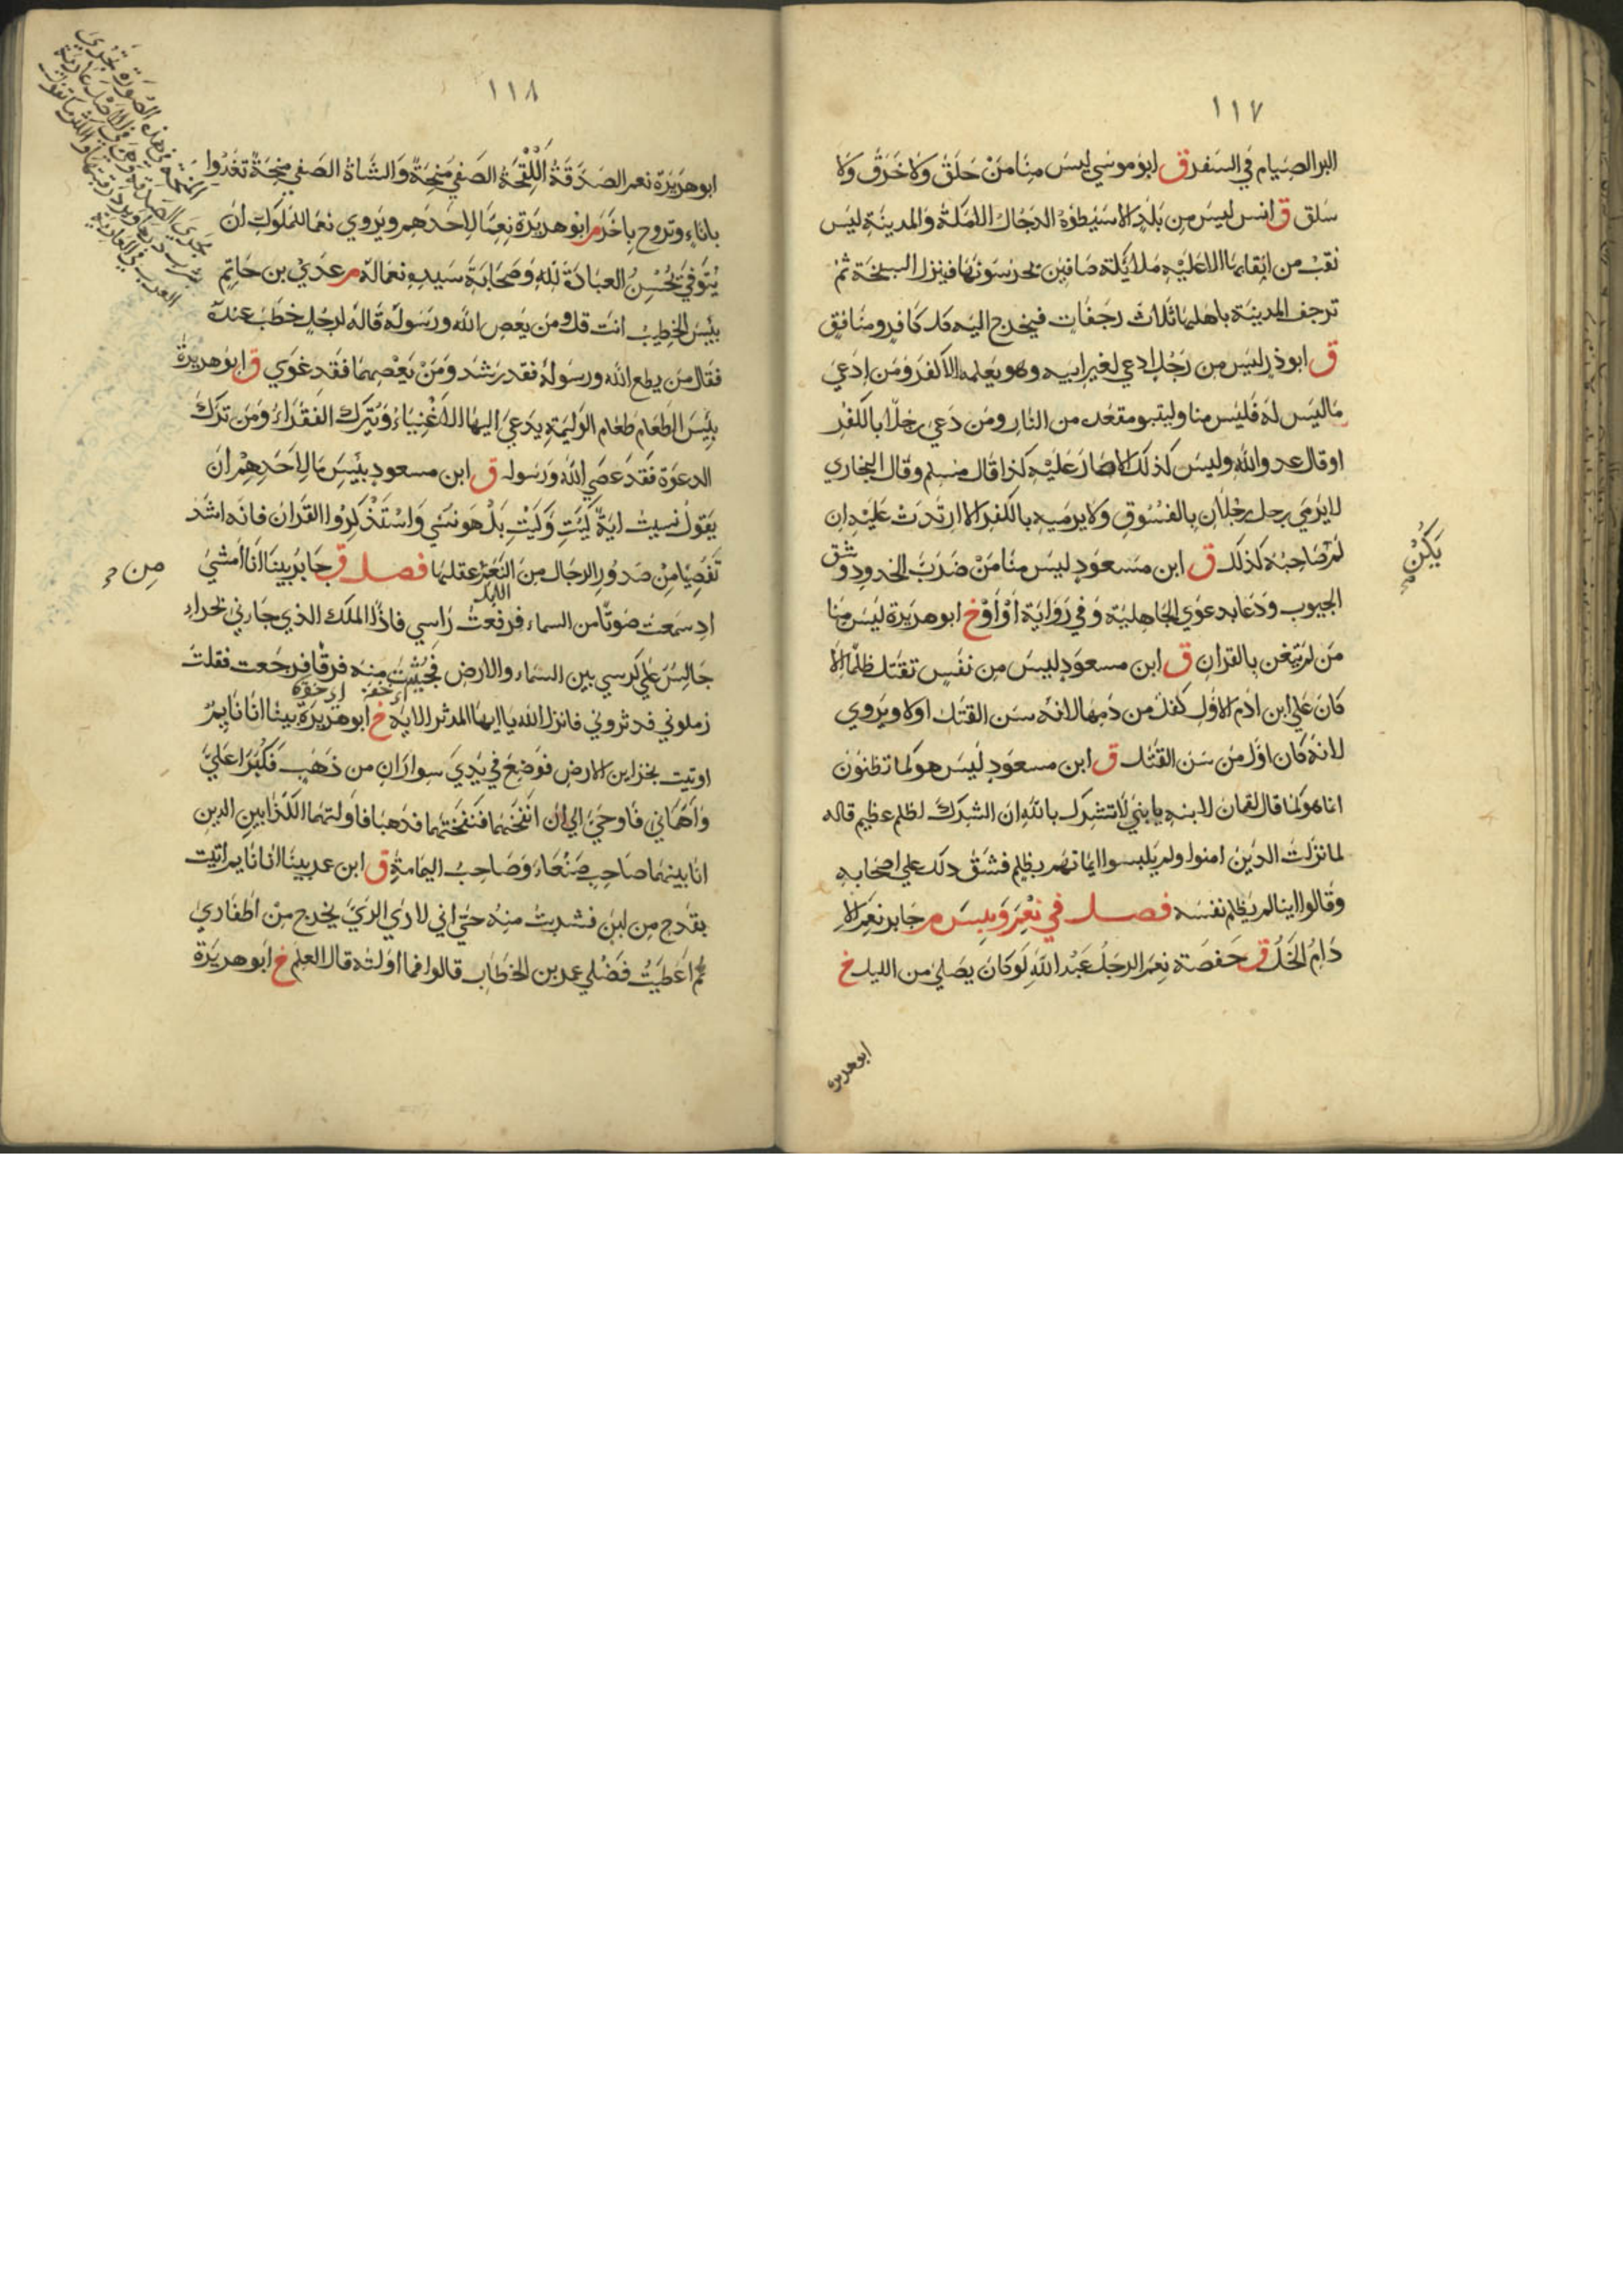 ١١٧
البر الصيام في السفر ق ابو موسي ليس منا من حلق ولا خرق ولا
سلق ق انس ليس من بلد الا سيطؤه الدجال الا مكة والمدينة ليس
نقب من انقابها الا عليه ملايكة صافين تحرسونها فينزل السبخة ثم
ترجف المدينة باهلها ثلاث رجفات فيخرج اليه كل كافر ومنافق
ق ابو ذر ليس من رجل ادعي لغير ابيه وهو يعلمه الا كفر ومن ادعي
ما ليس له فليس منا وليتبو مقعده من النار ومن دعي رجلا بالكفر
او قال عدو الله وليس كذلك الا حار عليه كذا قال مسلم وقال البخاري
لا يرمي رجل رجلا ن بالفسوق ولا يرميه بالكفر الا ارتدت عليه ان
لم صاحبه كذلك ق ابن مسعود ليس منا من ضرب الخدود وشق
يكن
الجيوب ودعا بدعوي الجاهلية وفي رواية او او خ ابو هريرة ليس منا
من لم يتغن بالقران ق ابن مسعود ليس من نفس تقتل ظلما الا
كان علي ابن ادم الاول كفل من دمها لانه سن القتل اولا ويروي
لانه كان اول من سن القتل ق ابن مسعود ليس هو كما تظنون
انما هو كما قال لقمان لابنه يا بني لا تشرك بالله ان الشرك لظلم عظيم قاله
لما نزلت الذين امنوا ولم يلبسوا ايمانهم بظلم فشق ذلك علي اصحابه
وقالوا اينا لم يظلم نفسه فصل في نعم وبيس م جابر نعم الا
دام الخل ق حفصة نعم الرجل عبد الله لو كان يصلي من الليل خ
ابو هريرة
١١٨
ابو هريرة نعم الصدقة اللقحة الصفي منحة والشاة الصفي منحة تغدوا
باناء وتروح باخر م ابو هريرة نعما لاحدهم ويروي نعما للمملوك ان
يتوفي يحسن العبادة لله وصحابة سيده نعما له م عدي بن حاتم
بئس الخطيب انت قل ومن يعص الله ورسوله قاله لرجل خطب عنده
فقال من يطع الله ورسوله فقد رشد ومن يعصهما فقد غوي ق ابو هريرة
بئس الطعام طعام الوليمة يدعي اليها الاغنياء ويترك الفقراء ومن ترك
الدعوة فقد عصي الله ورسوله ق ابن مسعود بئس ما لاحدهم ان
يقول نسيت اية كيت وكيت بل هو نسي واستذكروا القران فانه اشد
تفصيا من صدور الرجال من النعم عقلها فصل ق جابر بينا انا امشي
من
الابل
اد سمعت صوتا من السماء فرفعت راسي فاذا الملك الذي جاءني بحراء
جالس علي كرسي بين السماء والارض فجئثت منه فرقا فرجعت فقلت
زملوني فدثروني فانزل الله يا ايها المدثر الاية خ ابو هريرة بينا انا نايم
اوتيت بخزاين الارض فوضع في يدي سواران من ذهب فكبرا علي
واهماني فاوحي الي ان انفخهما فنفختهما فذهبا فاولتهما الكذابين الذين
انا بينهما صاحب صنعاء وصاحب اليمامة ق ابن عمر بينا انا نايم اتيت
بقدح من لبن فشربت منه حتي اني لاري الري يخرج من اظفاري
ثم اعطيت فضلي عمر بن الخطاب قالوا فما اولته قال العلم خ ابو هريرة